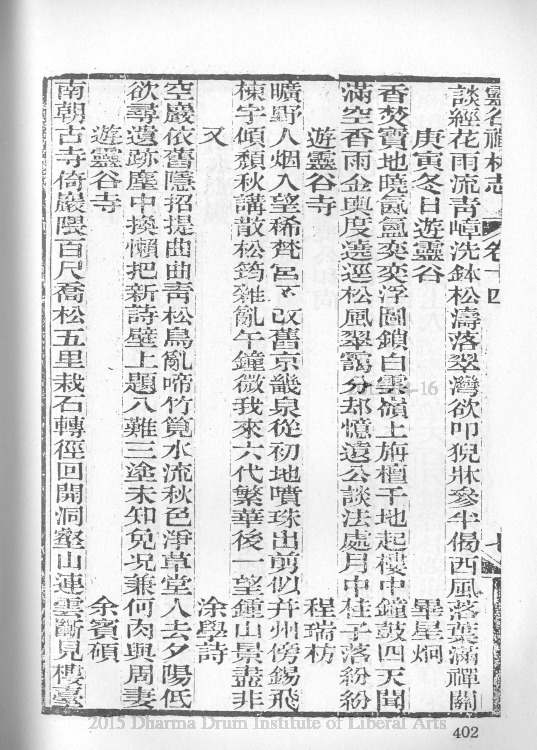 靈谷禪林志 卷十四
談經花雨流青嶂洗鉢松濤落翠灣欲叩猊牀參半偈西風落葉滿禪關
庚寅冬日遊靈谷 畢星炯
香焚寶地曉氤氳奕奕浮圖鎖白雲嶺上旃檀千地起樓中鐘鼓四天聞
滿空香雨金輿度遶逕松風翠靄分却憶遠公談法處月中桂子落紛紛
遊靈谷寺 程瑞枋
曠野人烟入望稀梵宮不改舊京畿泉從初地噴珠出前似弁州傍錫飛
棟宇傾頽秋講散松筠雜亂午鐘微我來六代繁華後一望鍾山景盡非
又 涂學詩
空巖依舊隱招提曲曲青松鳥亂啼竹筧水流秋色淨草堂人去夕陽低
欲尋遺跡塵中換懶把新詩壁上題八難三塗未知免况兼何肉與周妻
遊靈谷寺 余賓碩
南朝古寺倚巖隈百尺喬松五里栽石轉徑回開洞壑山連雲斷見樓臺
402
2015 Dharma Drum Institute of Liberal Arts